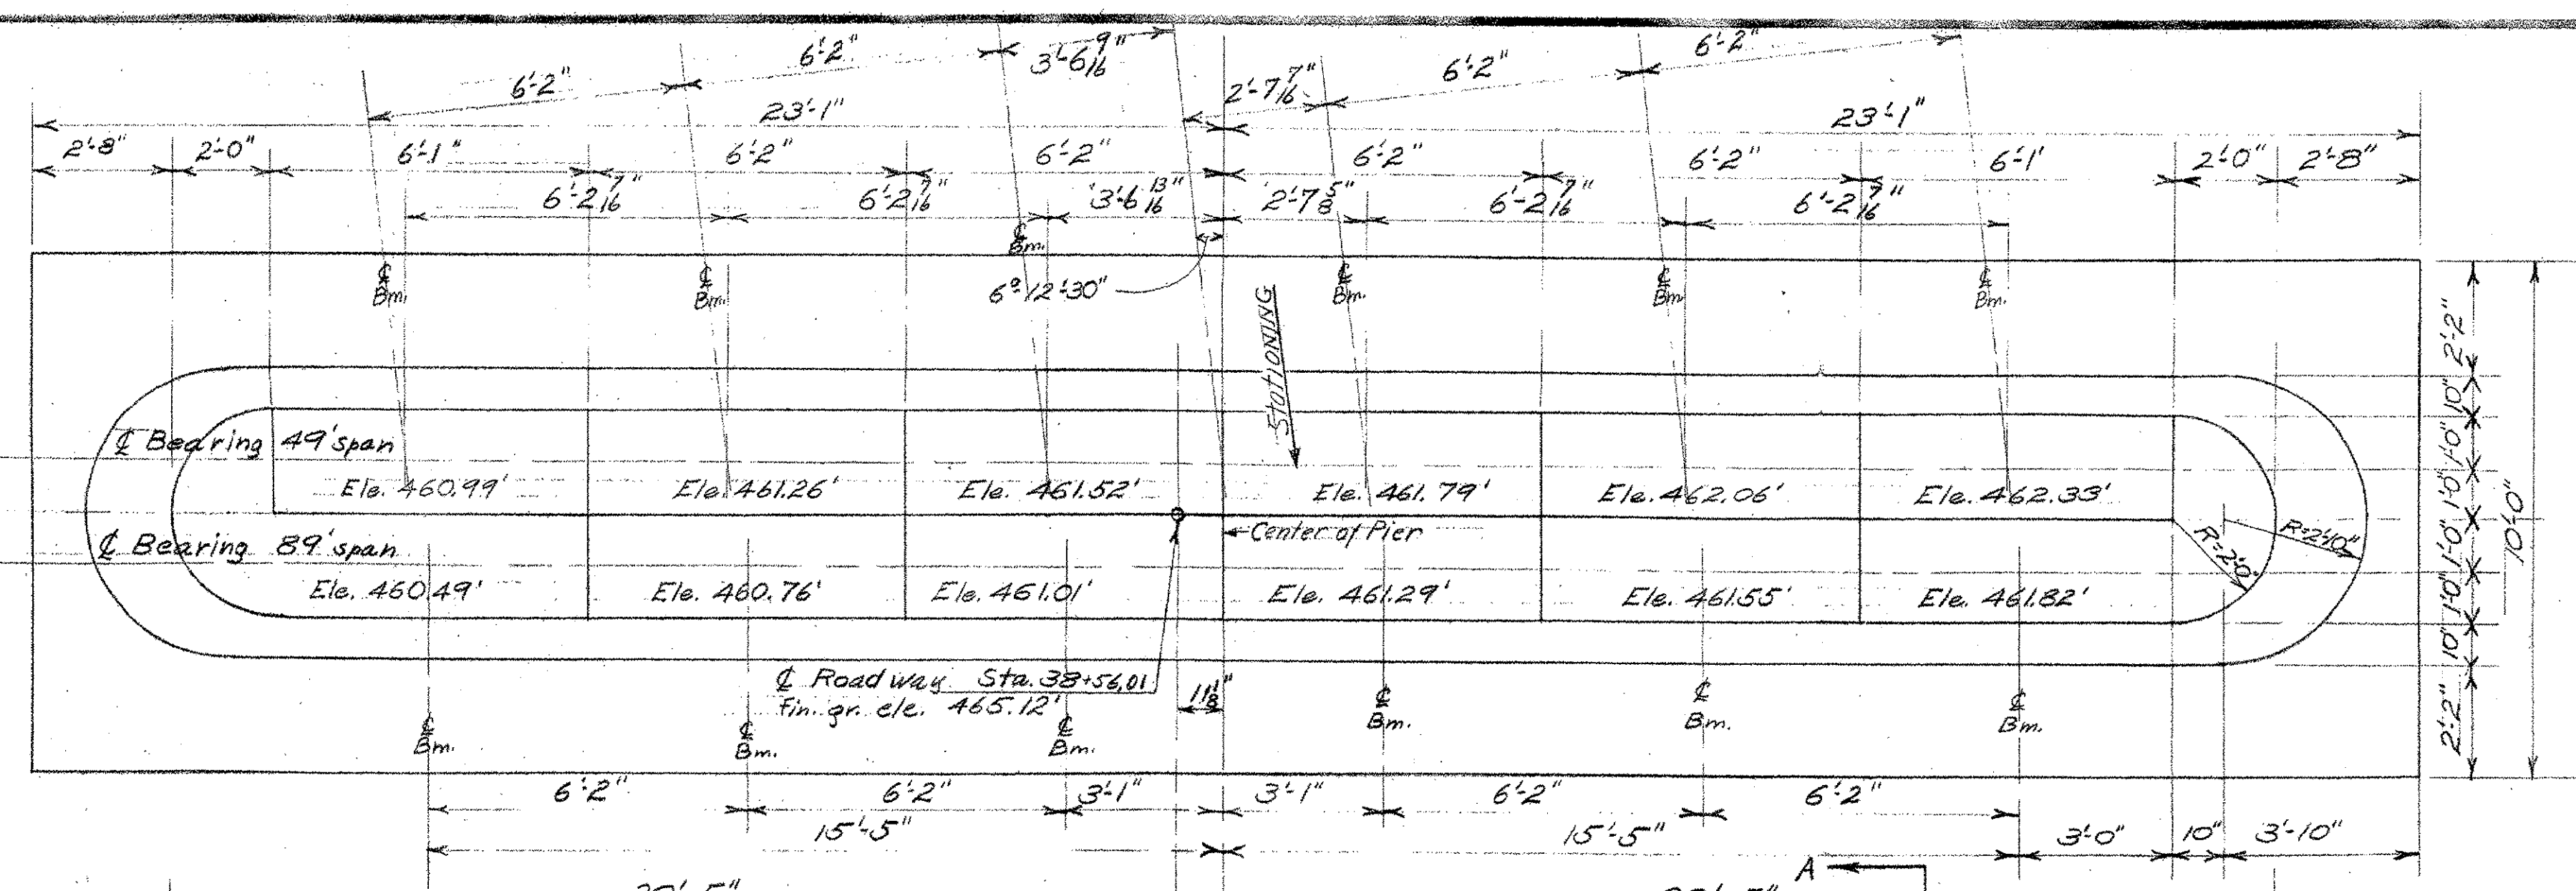 6'-2" 6'-2" 3'-6 9/16" 2'-7 7/16" 6'-2" 6'-2"
23'-1" 23'-1"
2'-8" 2'-0" 6'-1" 6'-2" 6'-2" 6'-2" 6'-2" 6'-1' 2'-0" 2'-8"
6'-2 7/16" 6'-2 7/16" 3'-6 13/16" 2'-7 5/8" 6'-2 7/16" 6'-2 7/16"
℄ Bm. ℄ Bm. ℄ Bm. ℄ Bm. ℄ Bm. ℄ Bm.
6°-12'-30"
Stationing
℄ Bearing 49' span
Ele. 460.99' Ele. 461.26' Ele. 461.52' Ele. 461.79' Ele. 462.06' Ele. 462.33'
Center of Pier
℄ Bearing 89' span
R=2'-0" R=2'-10"
Ele. 460.49' Ele. 460.76' Ele. 461.01' Ele. 461.29' Ele. 461.55' Ele. 461.82'
2'-2" 10" 1'-0" 1'-0" 1'-0" 1'-0" 10" 2'-2"
10'-0"
℄ Roadway Sta. 38+56.01
fin. gr. ele. 465.12'
11 1/8"
℄ Bm. ℄ Bm. ℄ Bm. ℄ Bm. ℄ Bm. ℄ Bm.
6'-2" 6'-2" 3'-1" 3'-1" 6'-2" 6'-2"
15'-5" 15'-5" 3'-0" 10" 3'-10"
A